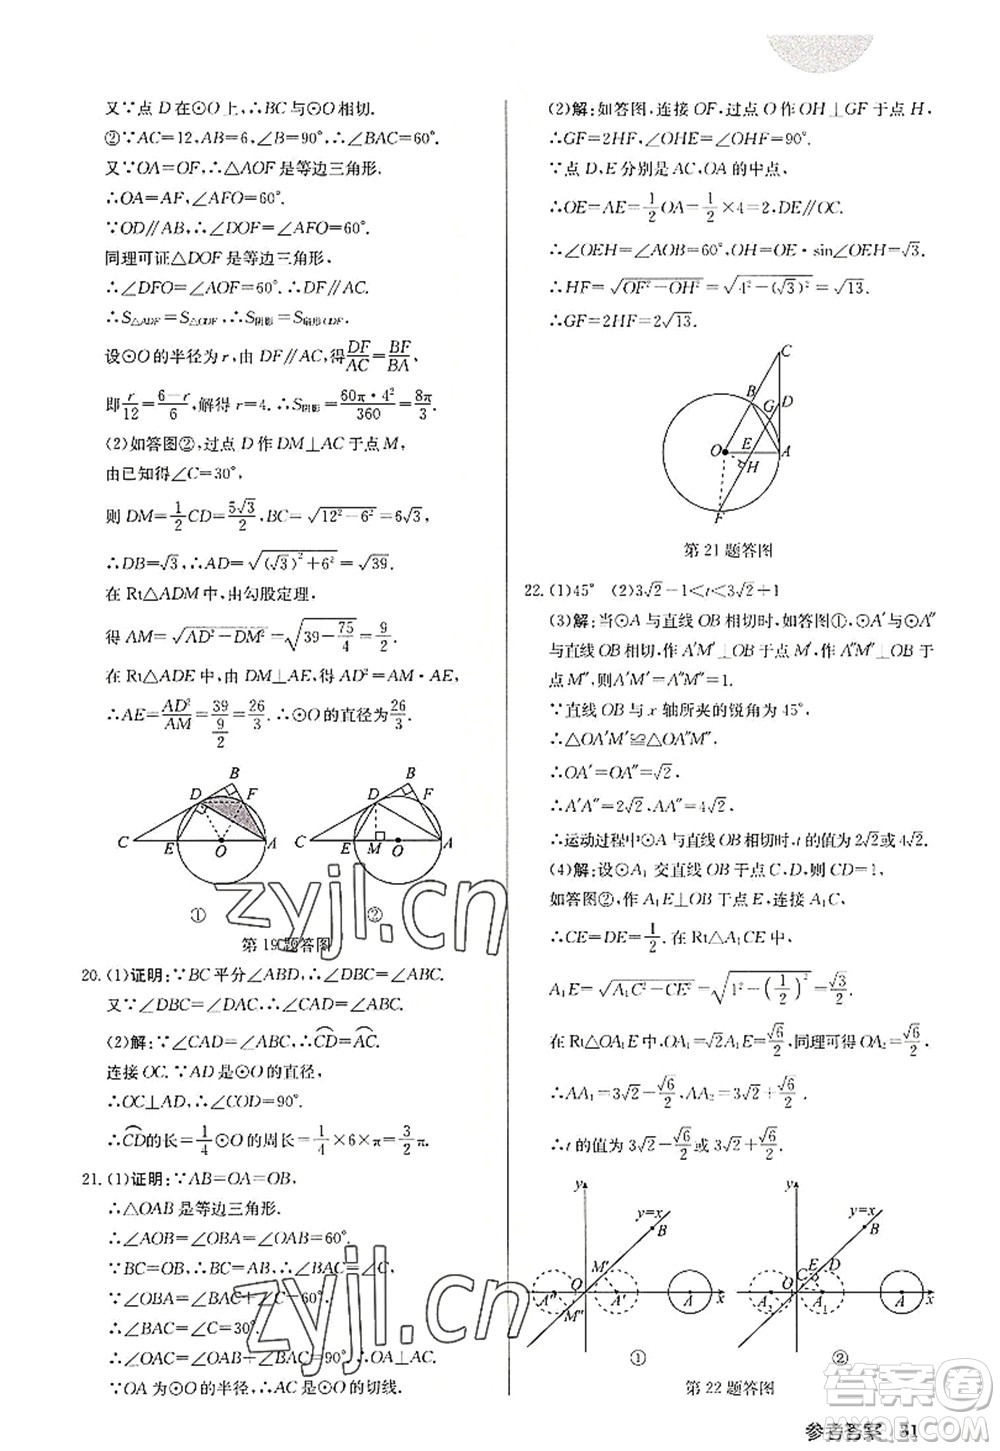 又∵点 D 在⊙O 上,∴BC与⊙O相切.
②∵AC=12,AB=6,∠B=90°,∴∠BAC=60°.
又∵OA=OF,∴△AOF是等边三角形.
∴OA=AF,∠AFO=60°.
∵OD∥AB,∴∠DOF=∠AFO=60°.
同理可证△DOF是等边三角形,
∴∠DFO=∠AOF=60°.∴DF∥AC.
∴S△ADF=S△ODF,∴S阴影=S扇形ODF.
设⊙O的半径为r,由DF∥AC,得DF/AC=BF/BA,
即r/12=(6-r)/6,解得r=4.∴S阴影=(60π·4²)/360=8π/3.
(2)如答图②,过点D作DM⊥AC于点M,
由已知得∠C=30°,
则 DM=1/2CD=5√3/2,BC=√(12²-6²)=6√3,
∴DB=√3,∴AD=√((√3)²+6²)=√39.
在 Rt△ADM 中,由勾股定理,
得 AM=√(AD²-DM²)=√(39-75/4)=9/2.
在 Rt△ADE 中,由DM⊥AE,得AD²=AM·AE,
∴AE=AD²/AM=39/(9/2)=26/3.∴⊙O的直径为26/3.
B
D F
C E O A
①
B
D F
C E M O A
②
第19题答图
20.(1)证明:∵BC平分∠ABD,∴∠DBC=∠ABC.
又∵∠DBC=∠DAC,∴∠CAD=∠ABC.
(2)解:∵∠CAD=∠ABC,∴⌒CD=⌒AC.
连接OC.∵AD是⊙O的直径,
∴OC⊥AD,∴∠COD=90°.
∴⌒CD的长=1/4⊙O的周长=1/4×6×π=3/2π.
21.(1)证明:∵AB=OA=OB,
∴△OAB是等边三角形.
∴∠AOB=∠OBA=∠OAB=60°.
∵BC=OB,∴BC=AB,∴∠BAC=∠C.
∵∠OBA=∠BAC+∠C=60°,
∴∠BAC=∠C=30°.
∴∠OAC=∠OAB+∠BAC=90°,∴OA⊥AC.
∵OA为⊙O的半径,∴AC是⊙O的切线.
(2)解:如答图,连接OF,过点O作OH⊥GF于点H,
∴GF=2HF,∠OHE=∠OHF=90°.
∵点D,E分别是AC,OA的中点,
∴OE=AE=1/2OA=1/2×4=2,DE∥OC.
∴∠OEH=∠AOB=60°,OH=OE·sin∠OEH=√3.
∴HF=√(OF²-OH²)=√(4²-(√3)²)=√13.
∴GF=2HF=2√13.
C
B
G D
O E A
H
F
第21题答图
22.(1)45° (2)3√2-1<t<3√2+1
(3)解:当⊙A与直线OB相切时,如答图①,⊙A′与⊙A″
与直线OB相切,作A′M′⊥OB于点M′,作A″M″⊥OB于
点M″,则A′M′=A″M″=1.
∵直线OB与x轴所夹的锐角为45°,
∴△OA′M′≌△OA″M″.
∴OA′=OA″=√2.
∴A′A″=2√2,AA′=2√2.
∴运动过程中⊙A与直线OB相切时,t的值为2√2或4√2.
(4)解:设⊙A₁交直线OB于点C,D,则CD=1,
如答图②,作A₁E⊥OB于点E,连接A₁C,
∴CE=DE=1/2.在Rt△A₁CE中,
A₁E=√(A₁C²-CE²)=√(1²-(1/2)²)=√3/2.
在Rt△OA₁E中,OA₁=√2A₁E=√6/2,同理可得OA₂=√6/2,
∴AA₁=3√2-√6/2,AA₂=3√2+√6/2.
∴t的值为3√2-√6/2或3√2+√6/2.
y
y=x
B
M′
O
A″ A′ A x
M″
①
y
y=x
B
C E D
O
A₂ A₁ A x
②
第22题答图
zyjl.cn
zyjl.cn
答案圈
MXQE.COM
参考答案 31